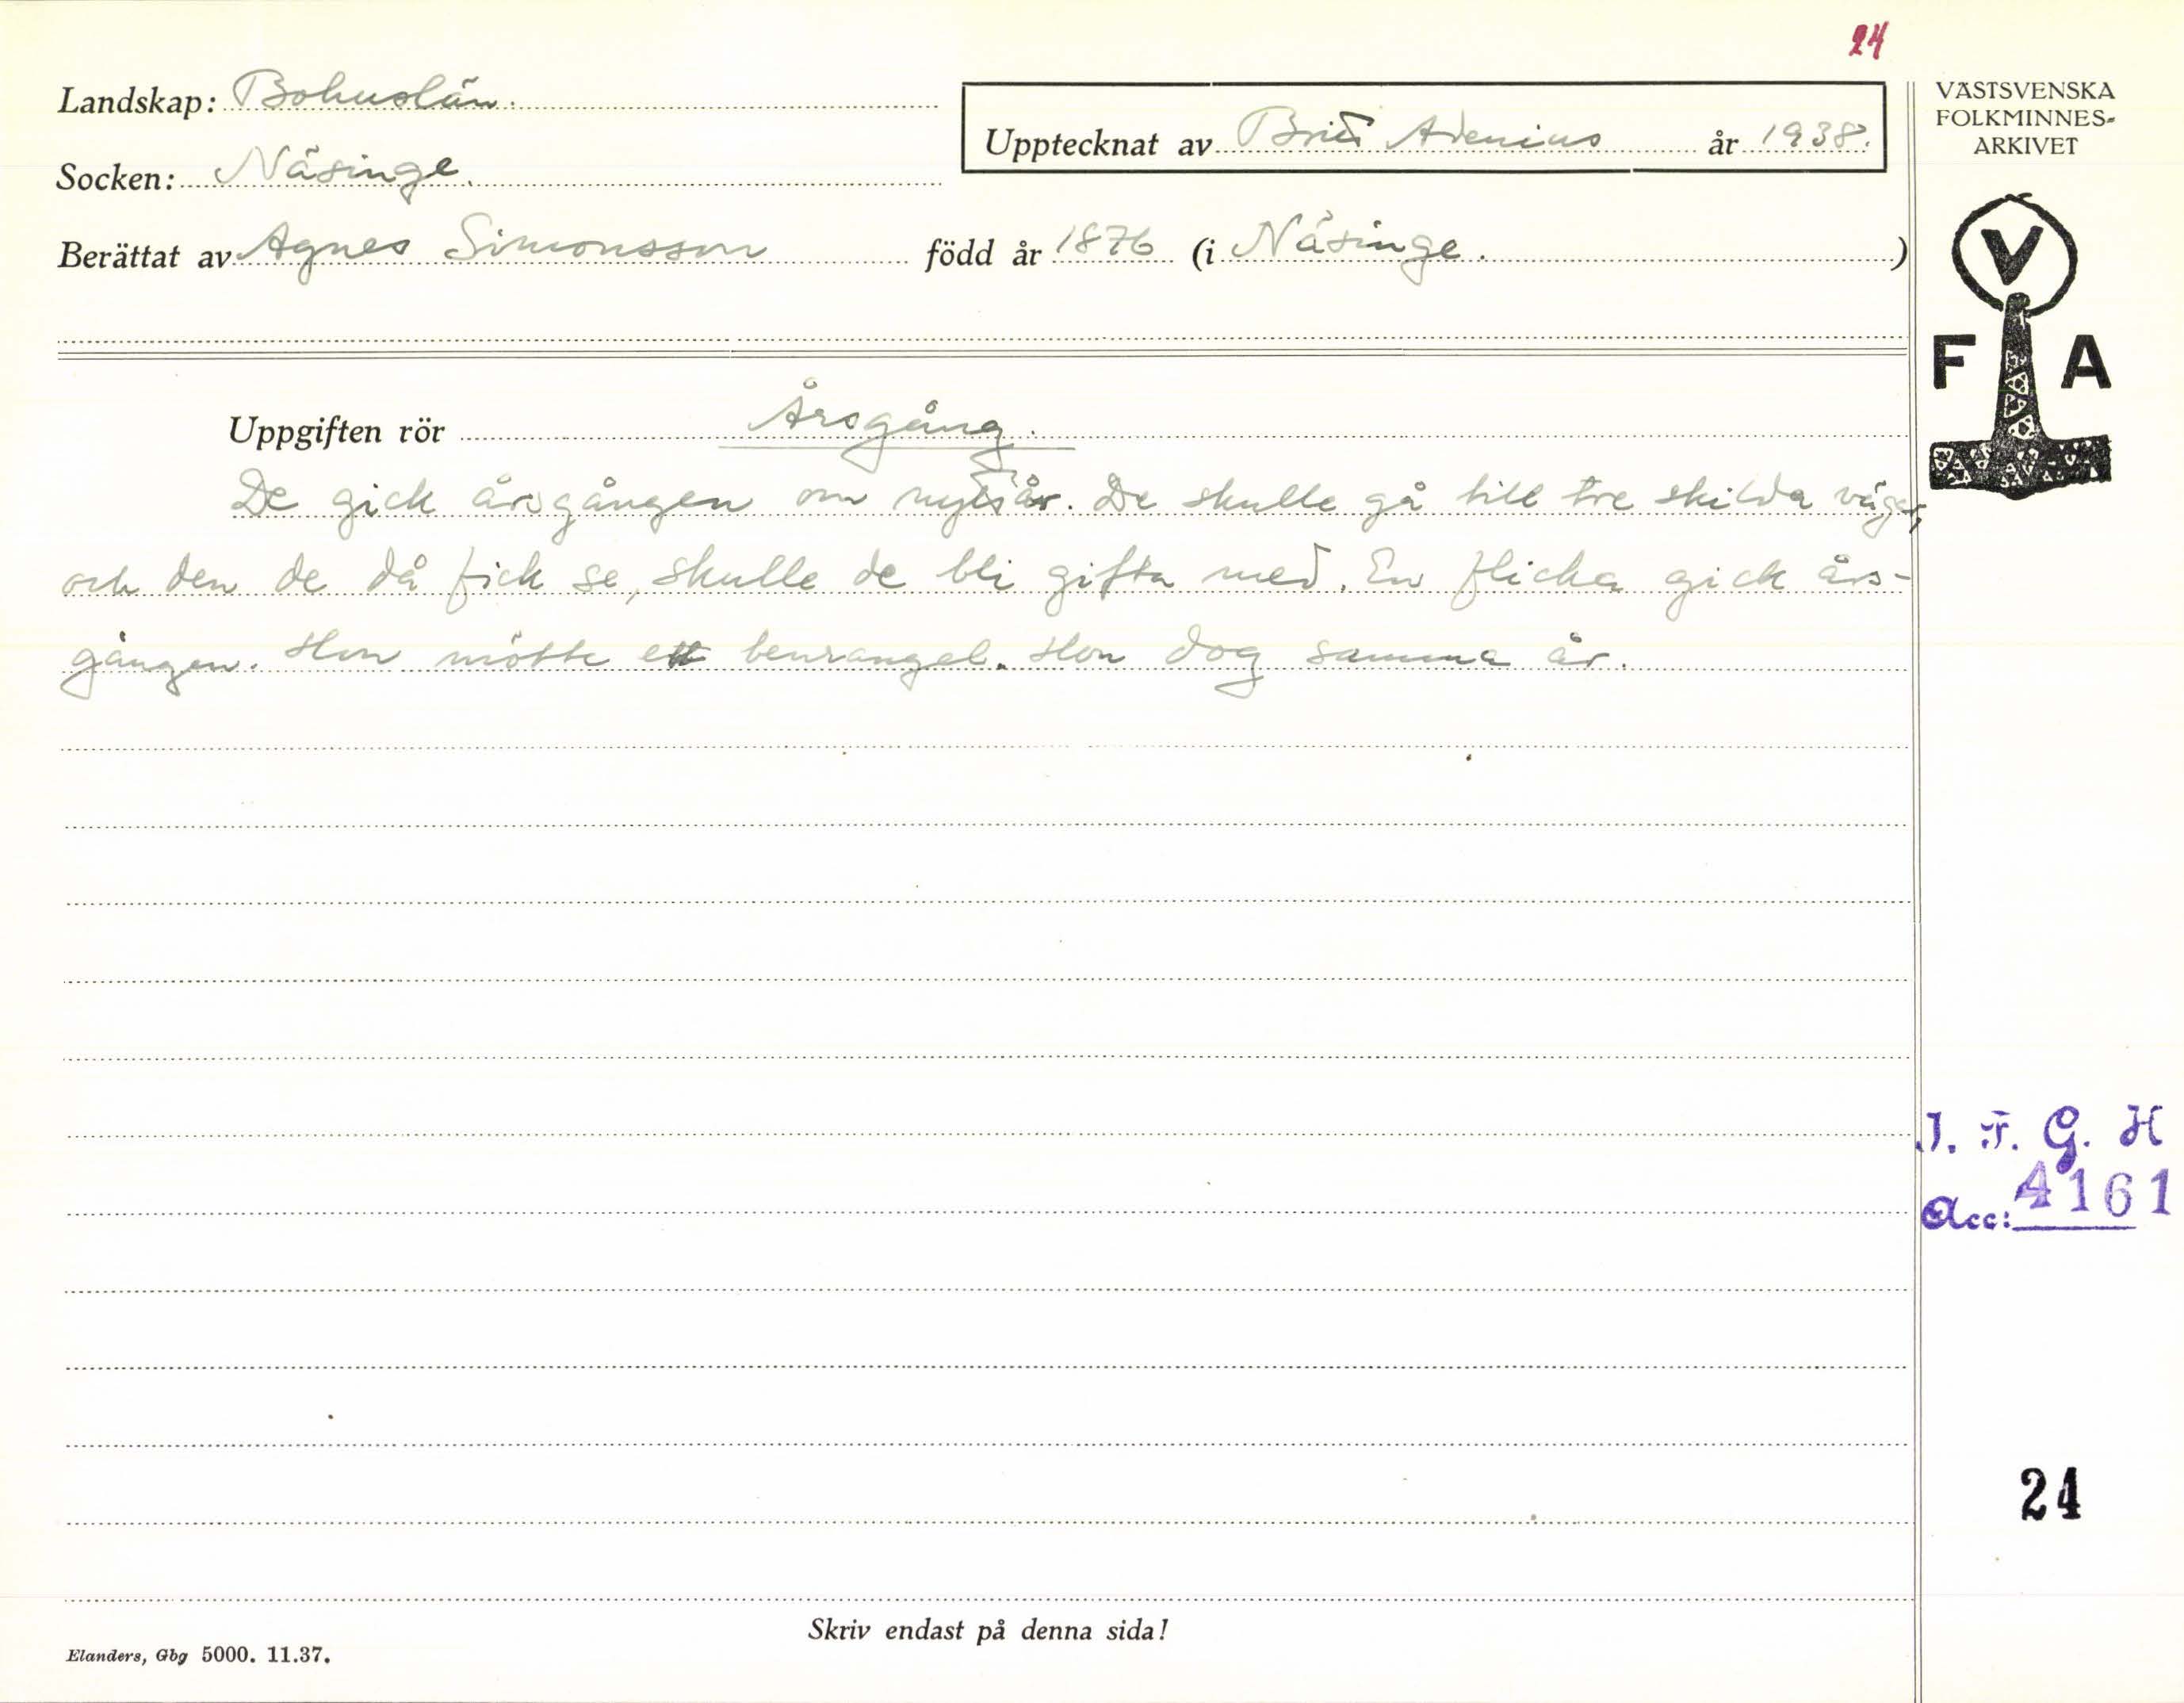 24
Landskap: Bohuslän.
Upptecknat av Brit Avenius år 1938.
Socken: Näsinge.
Berättat av Agnes Simonsson född år 1876 (i Näsinge.)
VÄSTSVENSKA
FOLKMINNES-
ARKIVET
V
F A
Uppgiften rör Årsgång.
De gick årsgången om nyårs. De skulle gå till tre skilda vägar,
och den de då fick se, skulle de bli gifta med. En flicka gick års-
gången. Hon mötte ett benrangel. Hon dog samma år.
I. F. G. H
Acc: 4161
24
Skriv endast på denna sida!
Elanders, Gbg 5000. 11.37.